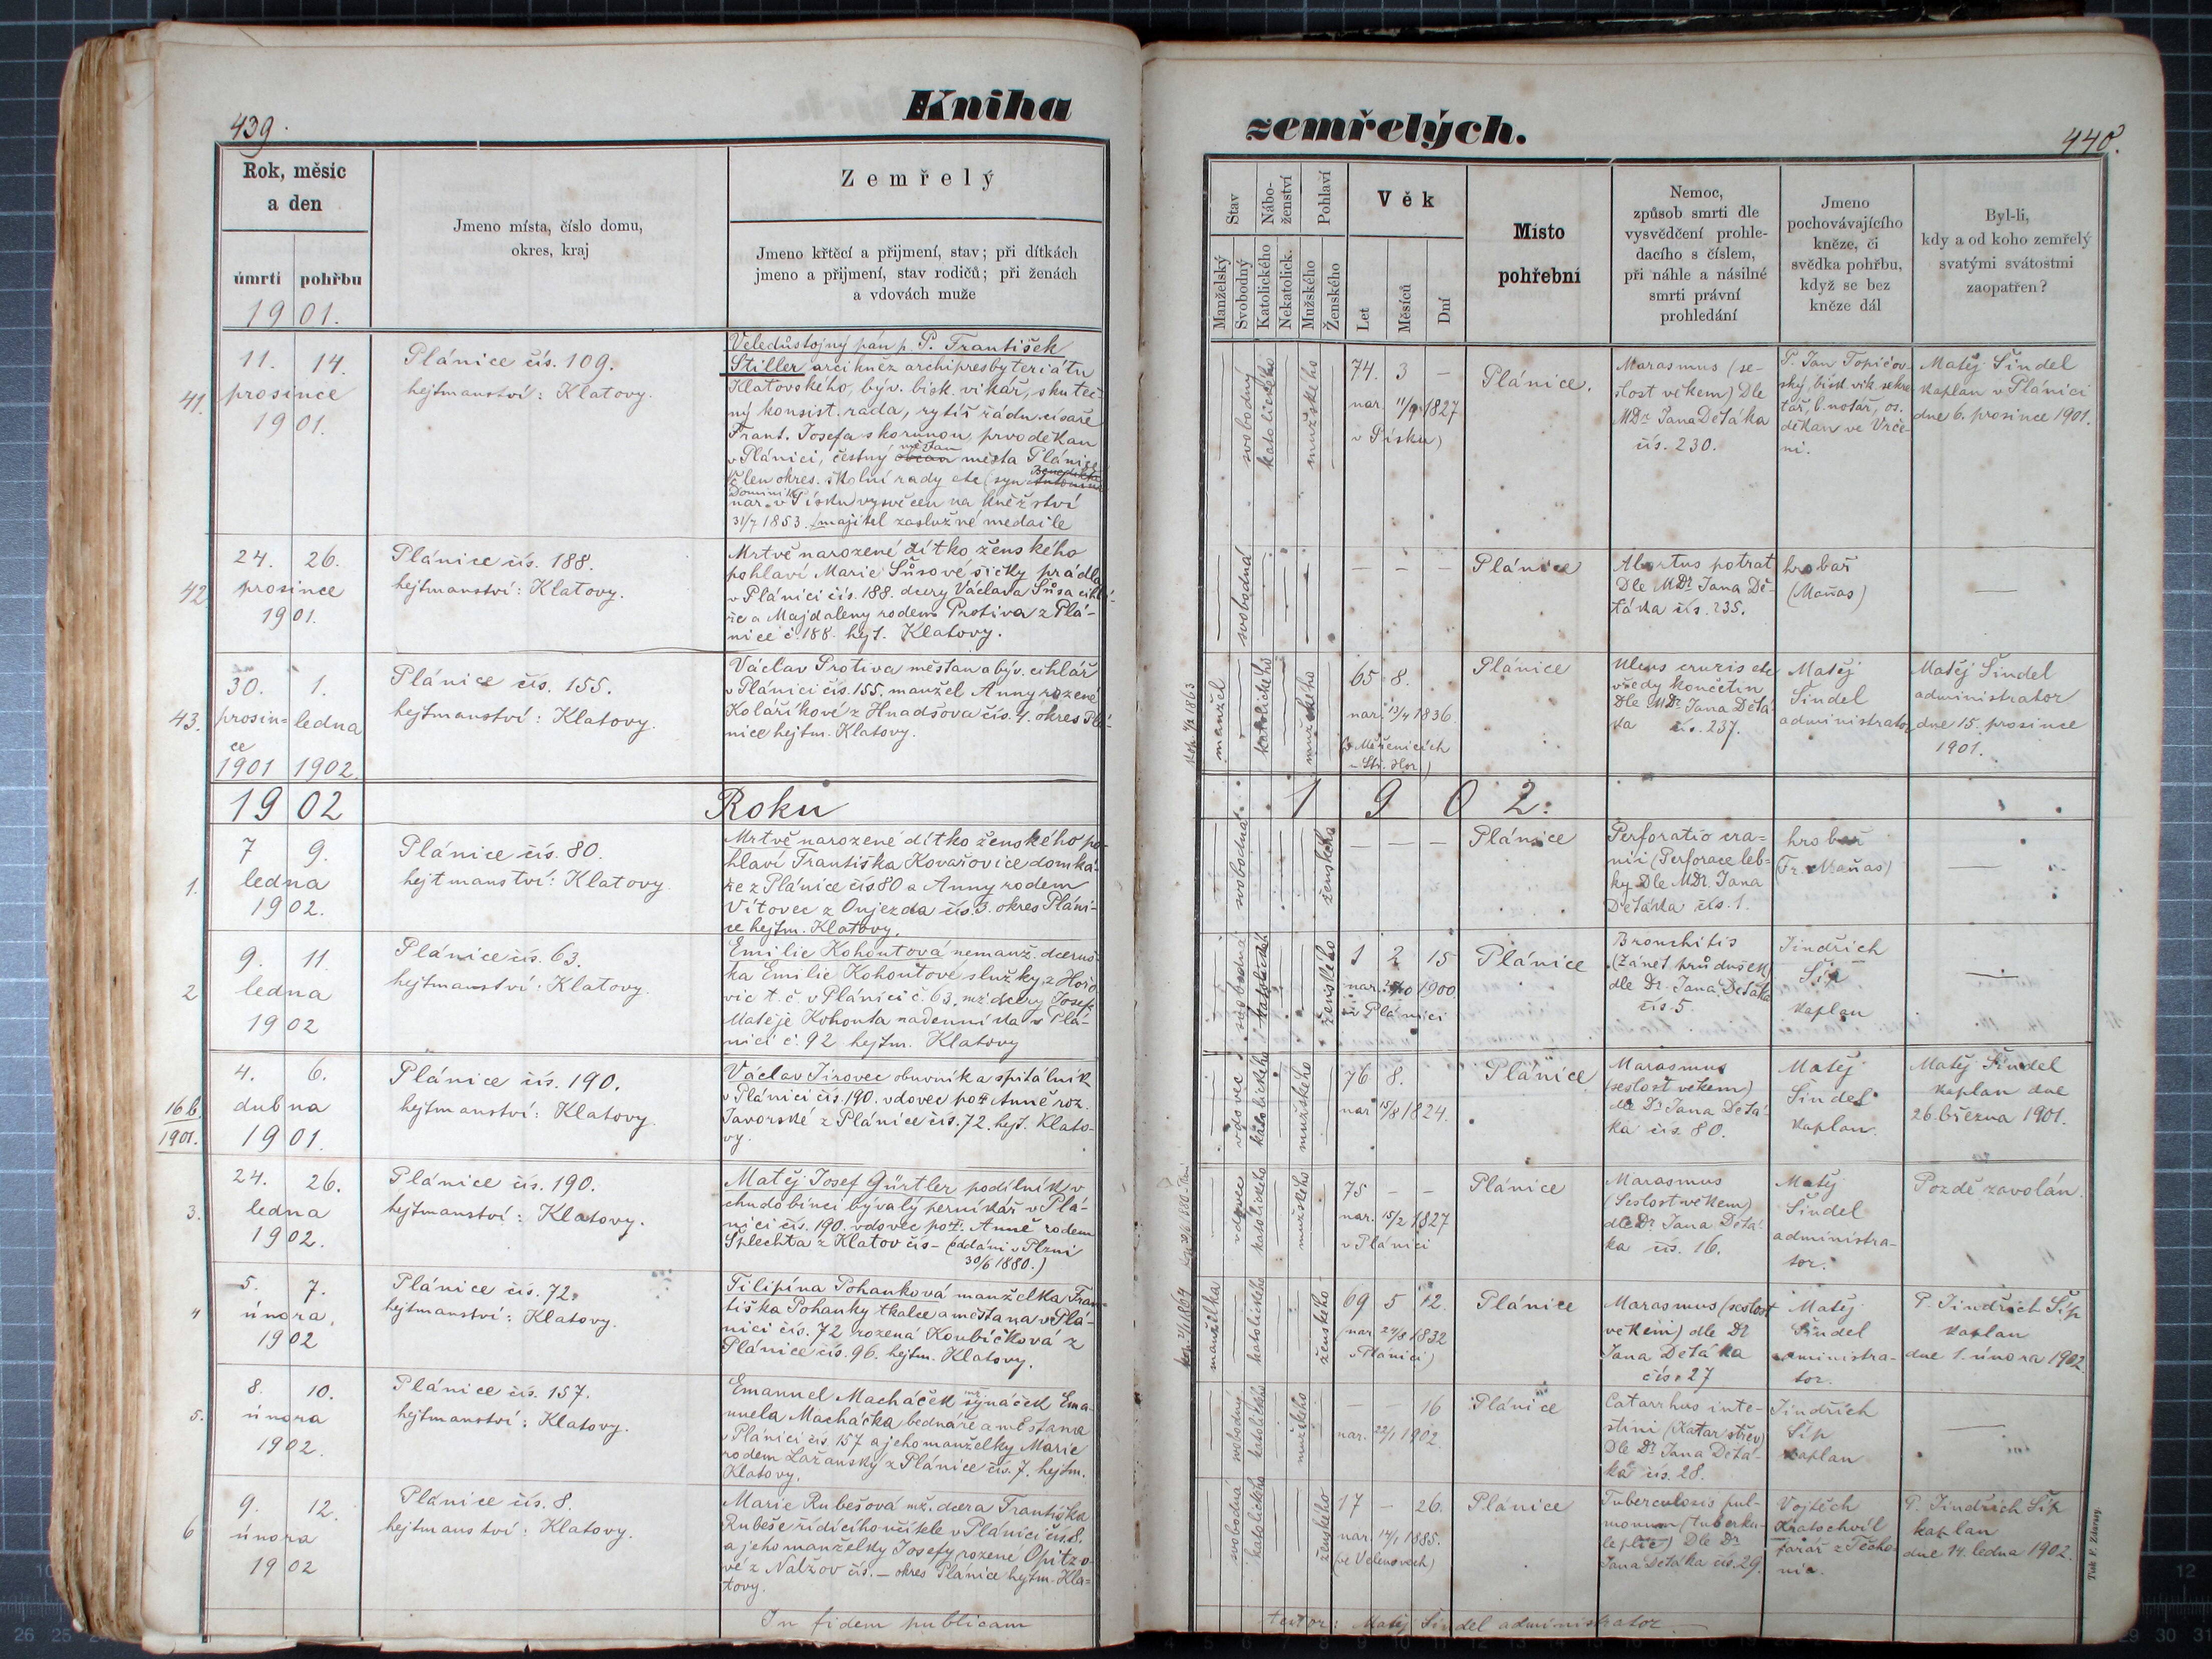 Kniha
439.
Rok, měsíc
a den
úmrtí pohřbu
Jmeno místa, číslo domu,
okres, kraj
Zemřelý
Jmeno křtěcí a přijmení, stav; při dítkách
jmeno a přijmení, stav rodičů; při ženách
a vdovách muže
1901.
41.
11. 14.
prosince
1901.
Plánice čís. 109.
hejtmanství: Klatovy.
Veledůstojný pán p. P. František
Stiller arcikněz archipresbyteriátu
Klatovského, býv. bisk. vikář, skuteč-
ný konsist. rada, rytíř řádu císaře
Frant. Josefa s korunou, prvoděkan
v Plánici, čestný měšťan města Plánice
Člen okres. školní rady etc (syn
Dominika
nar. v Písku) vysvěcen na kněžství
31/7 1853. majitel záslužné medaile
42
24. 26.
prosince
1901.
Plánice čís. 188.
hejtmanství: Klatovy.
Mrtvě narozené dítko ženského
pohlaví Marie Šůsové šičky prádla
v Plánici čís. 188. dcery Václava Šůsa cihlá-
ře a Majdaleny rodem Protiva z Plá-
nice č. 188. hejt. Klatovy.
43.
30. 1.
prosin- ledna
ce
1901 1902.
Plánice čís. 155.
hejtmanství: Klatovy.
Václav Protiva měšťan a býv. cihlář
v Plánici čís. 155. manžel Anny rozené
Koláříkové z Hnadšova čís. 4. okres Plá-
nice hejtm. Klatovy.
1902 Roku
1.
7 9.
ledna
1902.
Plánice čís. 80.
hejtmanství: Klatovy.
Mrtvě narozené dítko ženského po-
hlaví Františka Kovařovice domká-
ře z Plánice čís 80 a Anny rodem
Vítovec z Oujezda čís. 3. okres Pláni-
ce hejtm. Klatovy.
2
9. 11.
ledna
1902
Plánice čís. 63.
hejtmanství: Klatovy.
Emilie Kohoutová nemanž. dceruš-
ka Emilie Kohoutové služky z Hořo
vic t. č. v Plánici č. 63, mž dcery Josefa
Matěje Kohouta nádenníka v Plá-
nici č. 92 hejtm. Klatovy
16b.
1901.
4. 6.
dubna
1901.
Plánice čís. 190.
hejtmanství: Klatovy.
Václav Jírovec obuvník a špitálník
v Plánici čís. 190. vdovec po Anně roz.
Javorské z Plánice čís. 72. hejt. Klato-
vy.
3.
24. 26.
ledna
1902.
Plánice čís. 190.
hejtmanství: Klatovy.
Matěj Josef Gürtler podílník v
chudobinci bývalý perníkář v Plá-
nici čís. 190. vdovec po Anně rodem
Šplechta z Klatov čís – (oddáni v Plzni
30/6 1880.)
4
5. 7.
února.
1902
Plánice čís. 72.
hejtmanství: Klatovy.
Filipína Pohanková manželka Fran-
tiška Pohanky tkalce a měšťana v Plá-
nici čís. 72 rozená Koubíčková z
Plánice čís. 96. hejtm. Klatovy.
5.
8. 10.
února
1902.
Plánice čís. 157.
hejtmanství: Klatovy.
Emanuel Macháček mž synáček Ema-
nuela Macháčka bednáře a měšťana
v Plánici čís. 157 a jeho manželky Marie
rodem Lažanský z Plánice čís. 7. hejtm.
Klatovy.
6
9. 12.
února
1902
Plánice čís. 8.
hejtmanství: Klatovy.
Marie Rubešová mž. dcera Františka
Rubeše řídícího učitele v Plánici čís 8.
a jeho manželky Josefy rozené Opitzo-
vé z Nalžov čís. – okres Plánice hejtm. Kla-
tovy.
In fidem publicam
zemřelých.
440.
Stav
Manželský
Svobodný
Nábo-
ženství
Katolického
Nekatolick.
Pohlaví
Mužského
Ženského
Věk
Let
Měsíců
Dní
Místo
pohřební
Nemoc,
způsob smrti dle
vysvědčení prohle-
dacího s číslem,
při náhle a násilné
smrti právní
prohledání
Jmeno
pochovávajícího
kněze, či
svědka pohřbu,
když se bez
kněze dál
Byl-li,
kdy a od koho zemřelý
svatými svátostmi
zaopatřen?
svobodný
katolického
mužského
74. 3 –
nar. 11/9 1827.
v Písku)
Plánice.
Marasmus (se-
šlost věkem) Dle
MDr Jana Deťáka
čís. 230.
P. Jan Topičov-
ský, bisk. vik. sekre-
tář, b. notář, os.
děkan ve Vrče-
ni.
Matěj Šindel
kaplan v Plánici
dne 6. prosince 1901.
svobodná
– – –
Plánice
Abortus potrat
Dle MDr Jana De-
ťáka čís. 235.
hrobař
(Maňas)
–
Kop. 4/2 1863
manžel
katolického
mužského
65 8.
nar. 13/4 1836.
Plánice
Ulcus cruris etc
vředy končetin
Dle MDr Jana Deťá-
ka čís. 237.
Matěj
Šindel
administrator
Matěj Šindel
administrator
dne 15. prosince
1901.
1902.
svobodná
ženského
– – –
Plánice
Perforatio cra-
nii (Perforace leb-
ky Dle MDr. Jana
Deťáka čís. 1.
hrobař
(Fr. Maňas)
–
svobodná
katolické
ženského
1 2 15
nar. 1900
v Plánici
Plánice
Bronchitis
(Zánět průdušek)
dle Dr. Jana Deťáka
čís. 5
Jindřich
Šíp
kaplan
–
vdovec
katolického
mužského
76 8.
nar 15/8 1824.
Plánice
Marasmus
(sešlost věkem)
dle Dr Jana Deťá-
ka čís. 80.
Matěj
Šindel
kaplan.
Matěj Šindel
kaplan dne
26. března 1901.
vdovec
katolického
mužského
75 – –
nar. 15/2 1827
v Plánici
Plánice
Marasmus
(Sešlost věkem)
dle Dr Jana Deťá-
ka čís. 16.
Matěj
Šindel
administra-
tor.
Pozdě zavolán.
manželka
katolického
ženského
69 5 12.
(nar. 24/8 1832
v Plánici)
Plánice
Marasmus (sešlost
věkem) dle Dr
Jana Deťáka
čís. 27
Matěj
Šindel
administra-
tor.
P. Jindřich Šíp
kaplan
dne 1. února 1902
svobodný
katolického
mužského
– – 16
nar. 22/1 1902.
Plánice
Catarrhus inte-
stini (Katar střev)
Dle Dr Jana Deťá-
ka čís. 28.
Jindřich
Šíp
kaplan
–
svobodná
katolického
ženského
17 – 26.
nar. 14/1 1885.
(ve Velenovech)
Plánice
Tuberculosis pul-
monum (tuberku-
le plic) Dle Dr
Jana Deťáka čís. 29.
Vojtěch
Kratochvíl
farář z Těcho-
nic.
P. Jindřich Šíp
kaplan
dne 14. ledna 1902.
Tisk F. Zdarsy.
testor: Matěj Šindel administrator